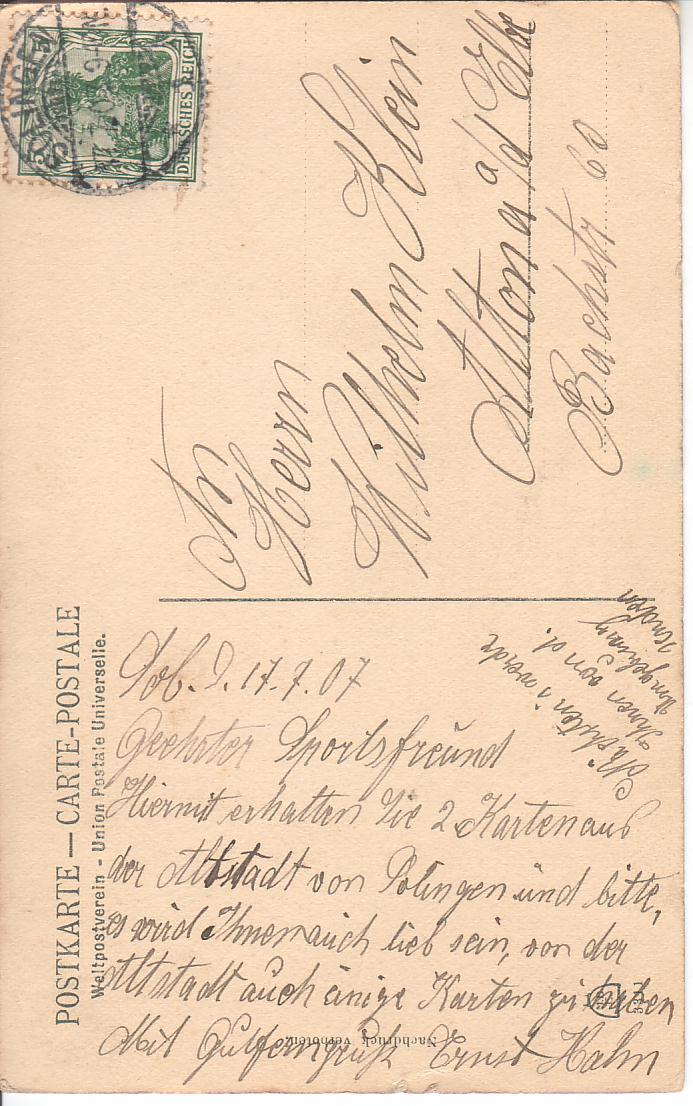 POSTKARTE — CARTE-POSTALE
Weltpostverein - Union Postale Universelle.
DEUTSCHES REICH
Herrn
Wilhelm Klein
Altona a/d Elbe
Bachstr 60
Sol. d. 17.7.07
Geehrter Sportsfreund
Hiermit erhalten Sie 2 Karten aus
der Altstadt von Solingen und bitte,
es wird Ihnen auch lieb sein, von der
Altstadt auch einige Karten zu haben
Mit Gutferngruß Ernst Hahn
Nächstens werde
Ihnen von d.
Umgebung
senden
Nachdruck verboten.